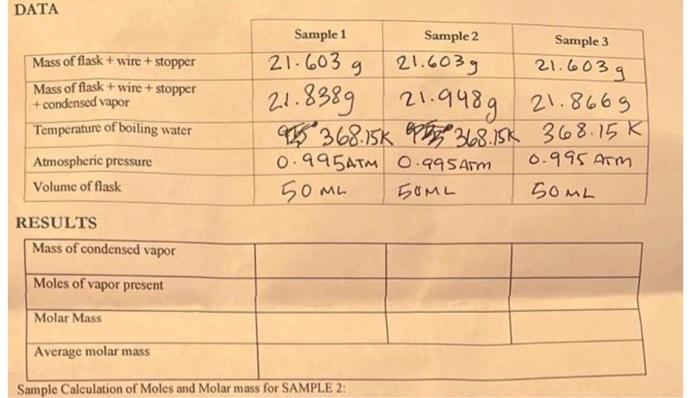 DATA
Sample 1 Sample 2 Sample 3
Mass of flask + wire + stopper 21.603 g 21.603 g 21.603 g
Mass of flask + wire + stopper
+ condensed vapor 21.838g 21.948g 21.866g
Temperature of boiling water 368.15K 368.15K 368.15 K
Atmospheric pressure 0.995ATM 0.995ATM 0.995 ATM
Volume of flask 50 ML 50ML 50 ML
RESULTS
Mass of condensed vapor
Moles of vapor present
Molar Mass
Average molar mass
Sample Calculation of Moles and Molar mass for SAMPLE 2: